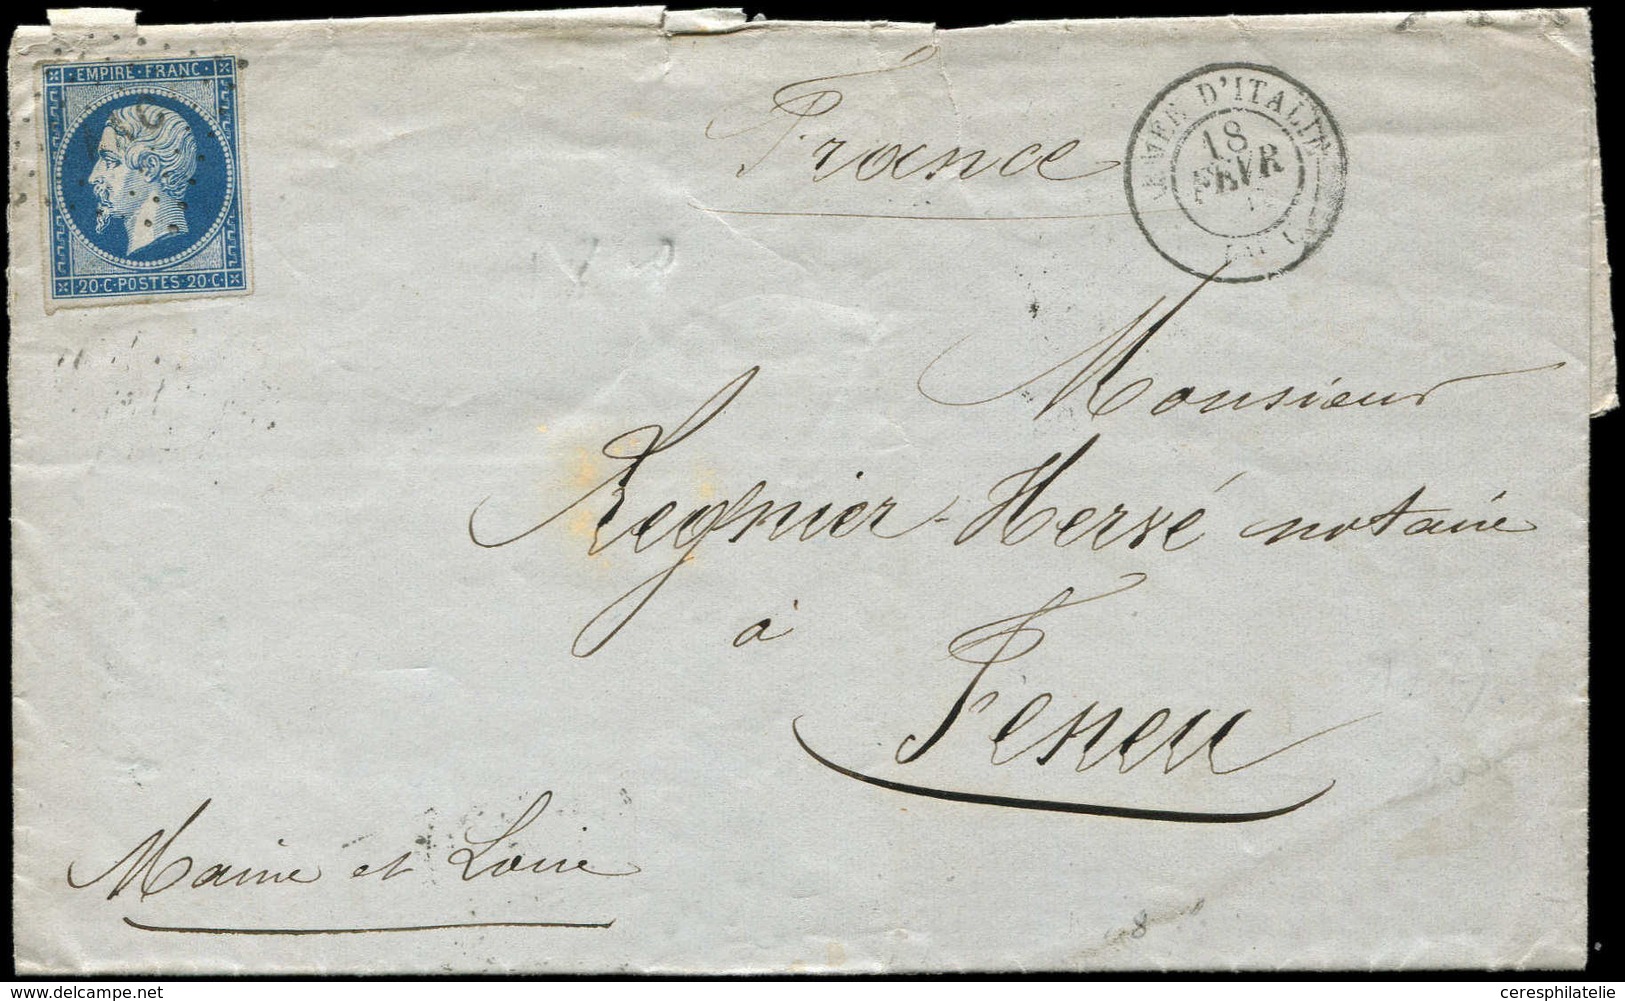 EMPIRE·FRANC·
20·C·POSTES·20·C·
France
ARMEE D'ITALIE
18
FEVR
Monsieur
Regnier-Hervé notaire
à
Feneu
Maine et Loire
8
delcampe.net
ceresphilatelie